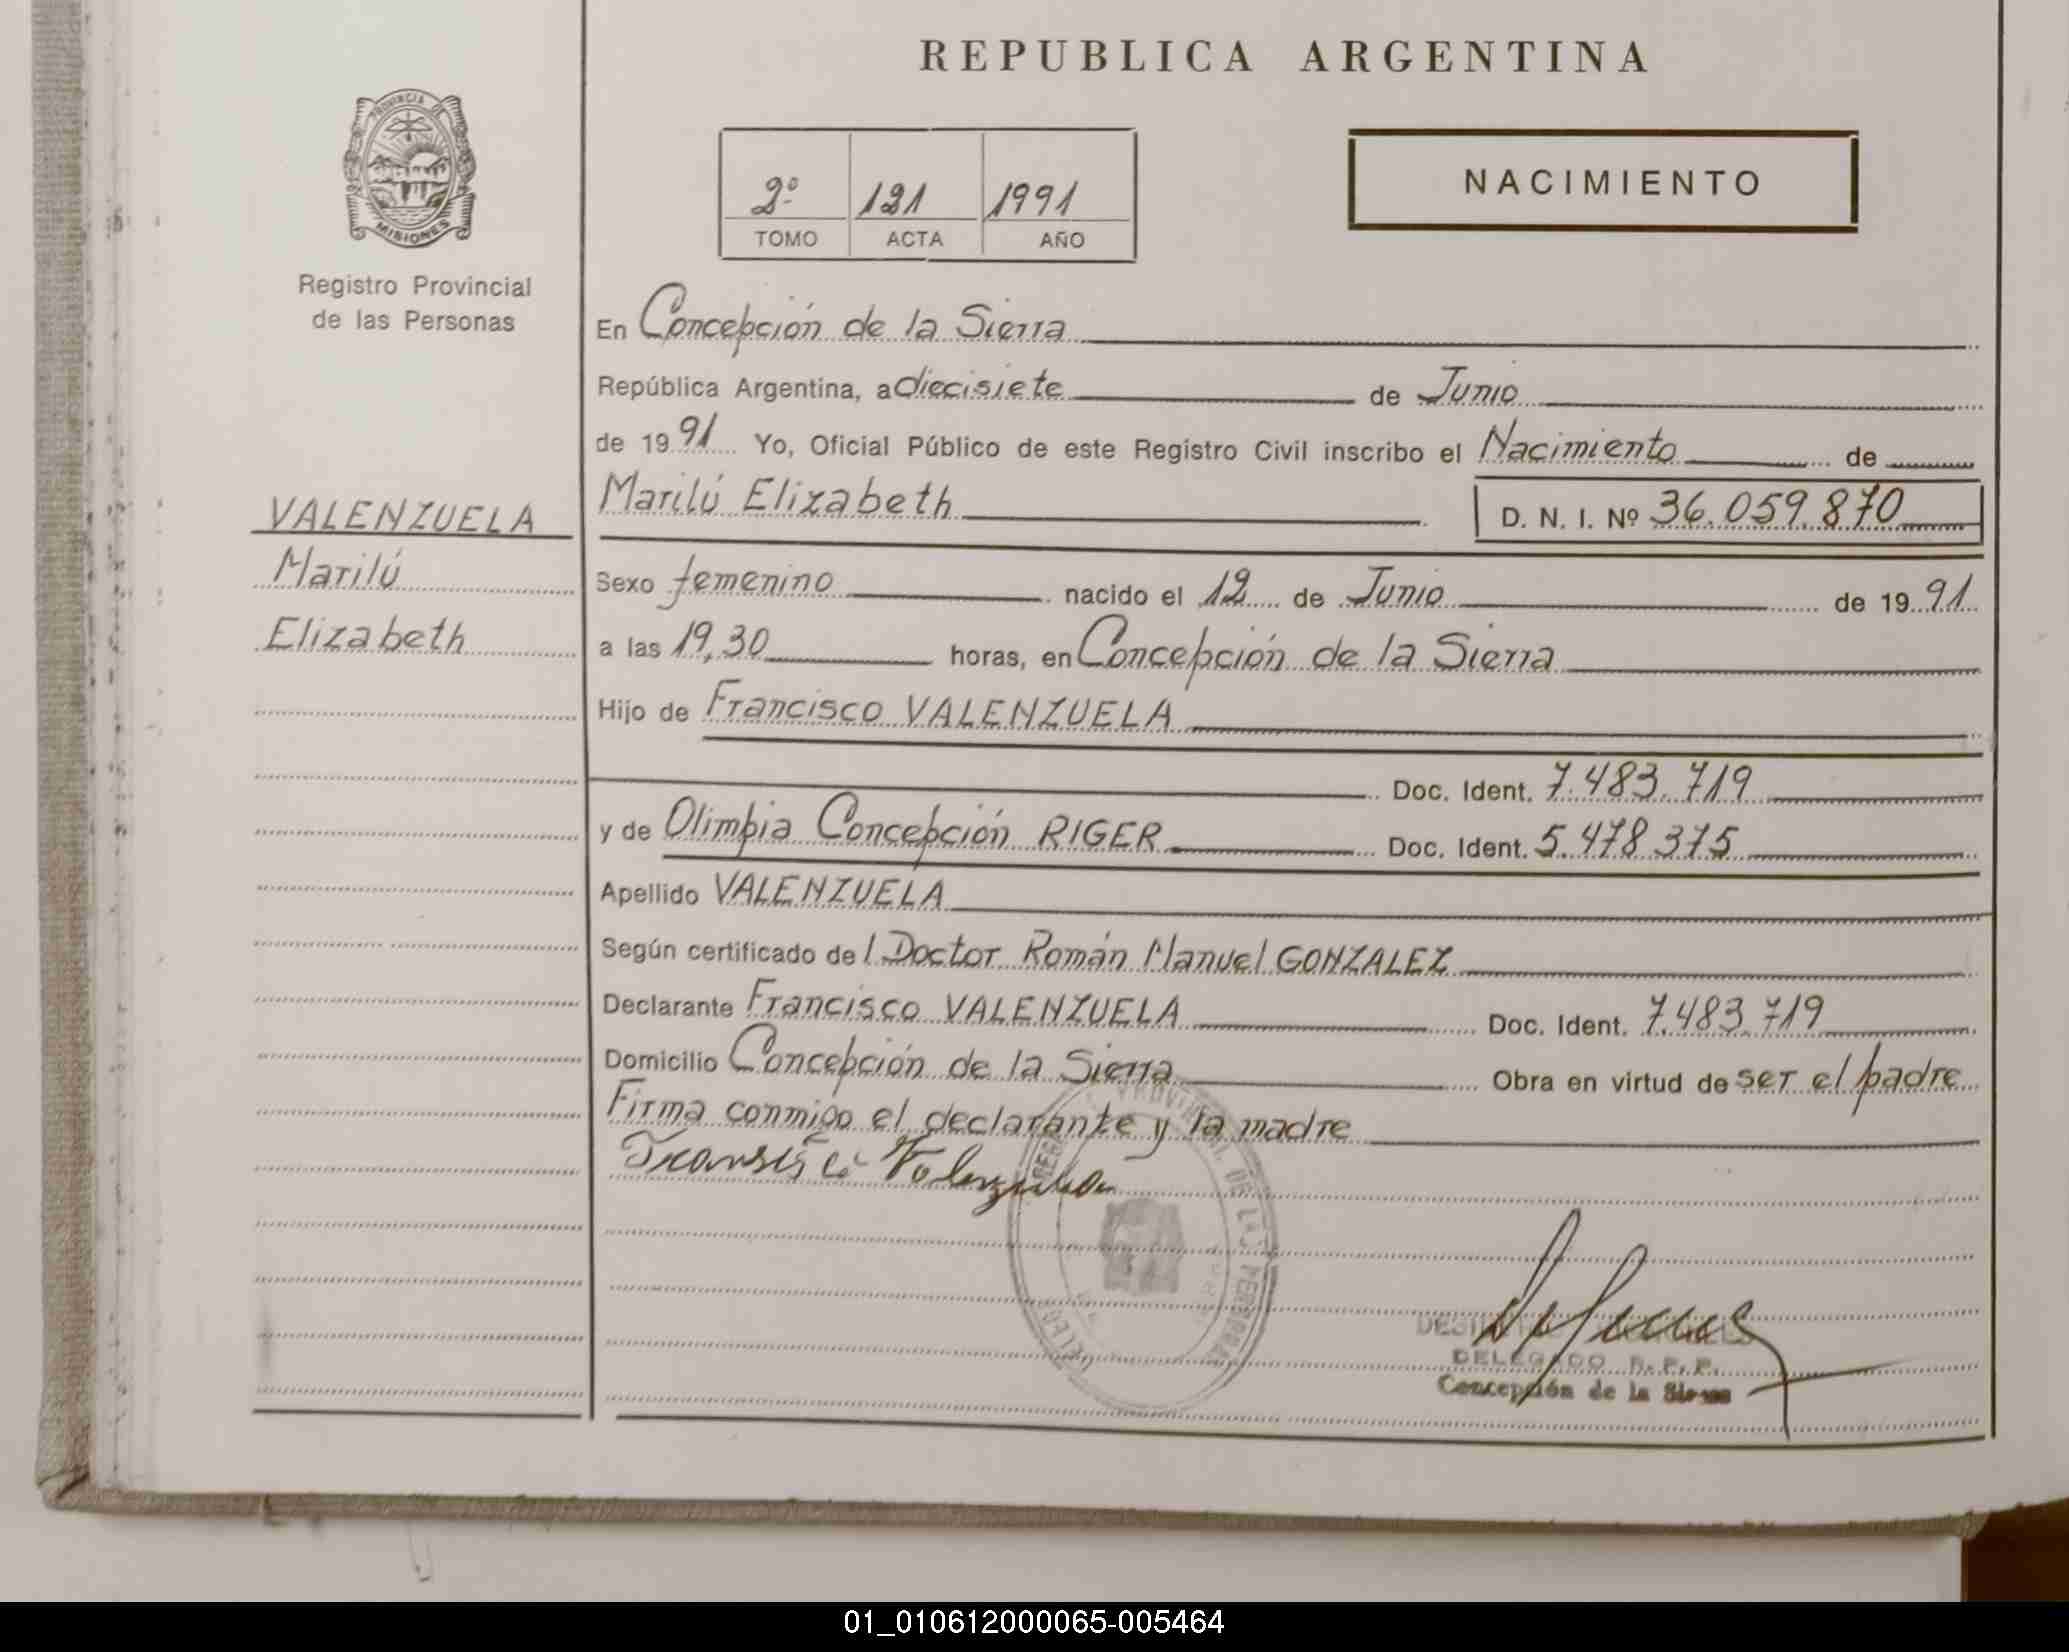 REPUBLICA ARGENTINA
PROVINCIA DE
MISIONES
Registro Provincial
de las Personas
2º 121 1991
TOMO ACTA AÑO
NACIMIENTO
VALENZUELA
Marilú
Elizabeth
En Concepción de la Sierra
República Argentina, a diecisiete de Junio
de 1991 Yo, Oficial Público de este Registro Civil inscribo el Nacimiento de
Marilú Elizabeth D. N. I. Nº 36.059.870
Sexo femenino nacido el 12 de Junio de 1991
a las 19,30 horas, en Concepción de la Sierra
Hijo de Francisco VALENZUELA
Doc. Ident. 7.483.719
y de Olimpia Concepción RIGER Doc. Ident. 5.478.375
Apellido VALENZUELA
Según certificado del Doctor Román Manuel GONZALEZ
Declarante Francisco VALENZUELA Doc. Ident. 7.483.719
Domicilio Concepción de la Sierra Obra en virtud de ser el padre
Firma conmigo el declarante y la madre
Francisco Valenzuela
DELEGADO R.P.P.
Concepción de la Sierra
01_010612000065-005464